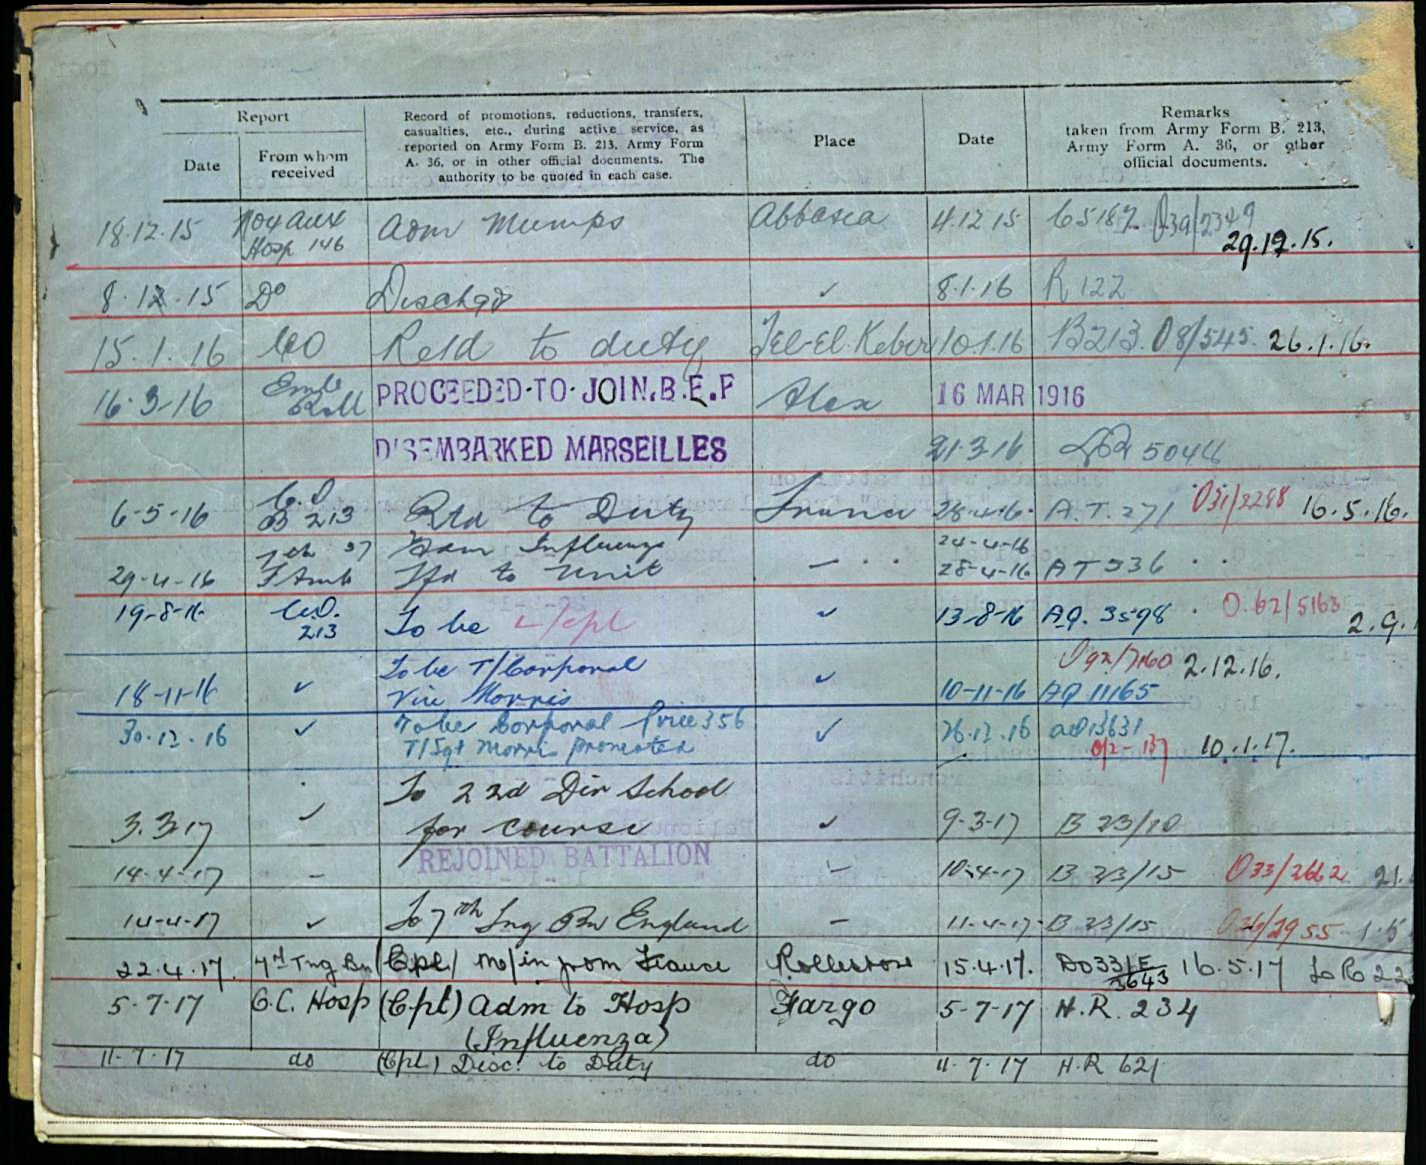 Report
Date
From whom
received
Record of promotions, reductions, transfers,
casualties, etc., during active service, as
reported on Army Form B. 213, Army Form
A. 36, or in other official documents. The
authority to be quoted in each case.
Place
Date
Remarks
taken from Army Form B. 213,
Army Form A. 36, or other
official documents.
18.12.15 No 4 Aux Adm Mumps Abbasia 4.12.15
Hosp 146 29.12.15.
8.12.15 Do Dischgd ✓ 8.1.16 R 122
15.1.16 CO Retd to duty Tel-El-Kebir 10.1.16 B213. O8/545. 26.1.16.
16.3.16 Emb Roll PROCEEDED·TO·JOIN.B.E.F Alex 16 MAR 1916
DISEMBARKED MARSEILLES 21.3.16 5044
6-5-16 C.O B 213 Rtd to Duty France 28.4.16. A.T. 271 O31/2298 16.5.16.
7th Adm Influenza 24-4-16
29-4-16 F Amb Tfd to Unit — 28-4-16 AT 536
19-8-16 C.O. 213 To be L/Cpl ✓ 13-8-16 AQ. 3598 O.62/5163 2.9.
To be T/Corporal O92/7160 2.12.16.
18-11-16 ✓ Vice Morris ✓ 10-11-16 AQ 11165
30.12.16 ✓ To be Corporal (vice 356 ✓ 26.12.16 aQ 13631
T/Sgt Morris promoted O/2-137 10.1.17.
To 22d Div School
3.3.17 ✓ for course ✓ 9-3-17 B 23/10
REJOINED BATTALION
14-4-17 – ✓ 10-4-17 B 23/15 O33/2662 21.
14-4-17 ✓ To 7th Tng Bn England – 11-4-17 B 23/15 O36/2955
22.4.17. Tng Bn (Cpl) M/in from France Rolleston 15.4.17. DO33/E 3643 16.5.17
5-7-17 O.C. Hosp (Cpl) Adm to Hosp Fargo 5-7-17 H.R. 234
(Influenza)
11-7-17 do (Cpl) Disc. to Duty do 11.7.17 H.R 621